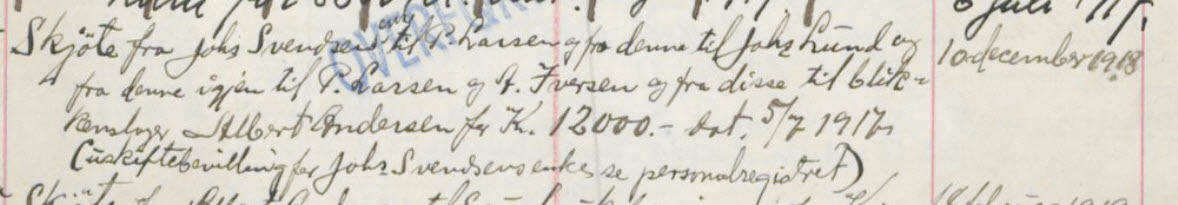 6 juli 1917.
Skjöte fra Johs Svendsens enke til P. Larsen og fra denne til Johs Lund og
fra denne igjen til P. Larsen og A. Iversen og fra disse til blik-
kenslager Albert Andersen for Kr. 12000.- dat. 5/7 1917
(uskiftebevilling for Johs Svendsens enke se personalregistret)
10 december 1918
Skjöte fra Albert Andersen til